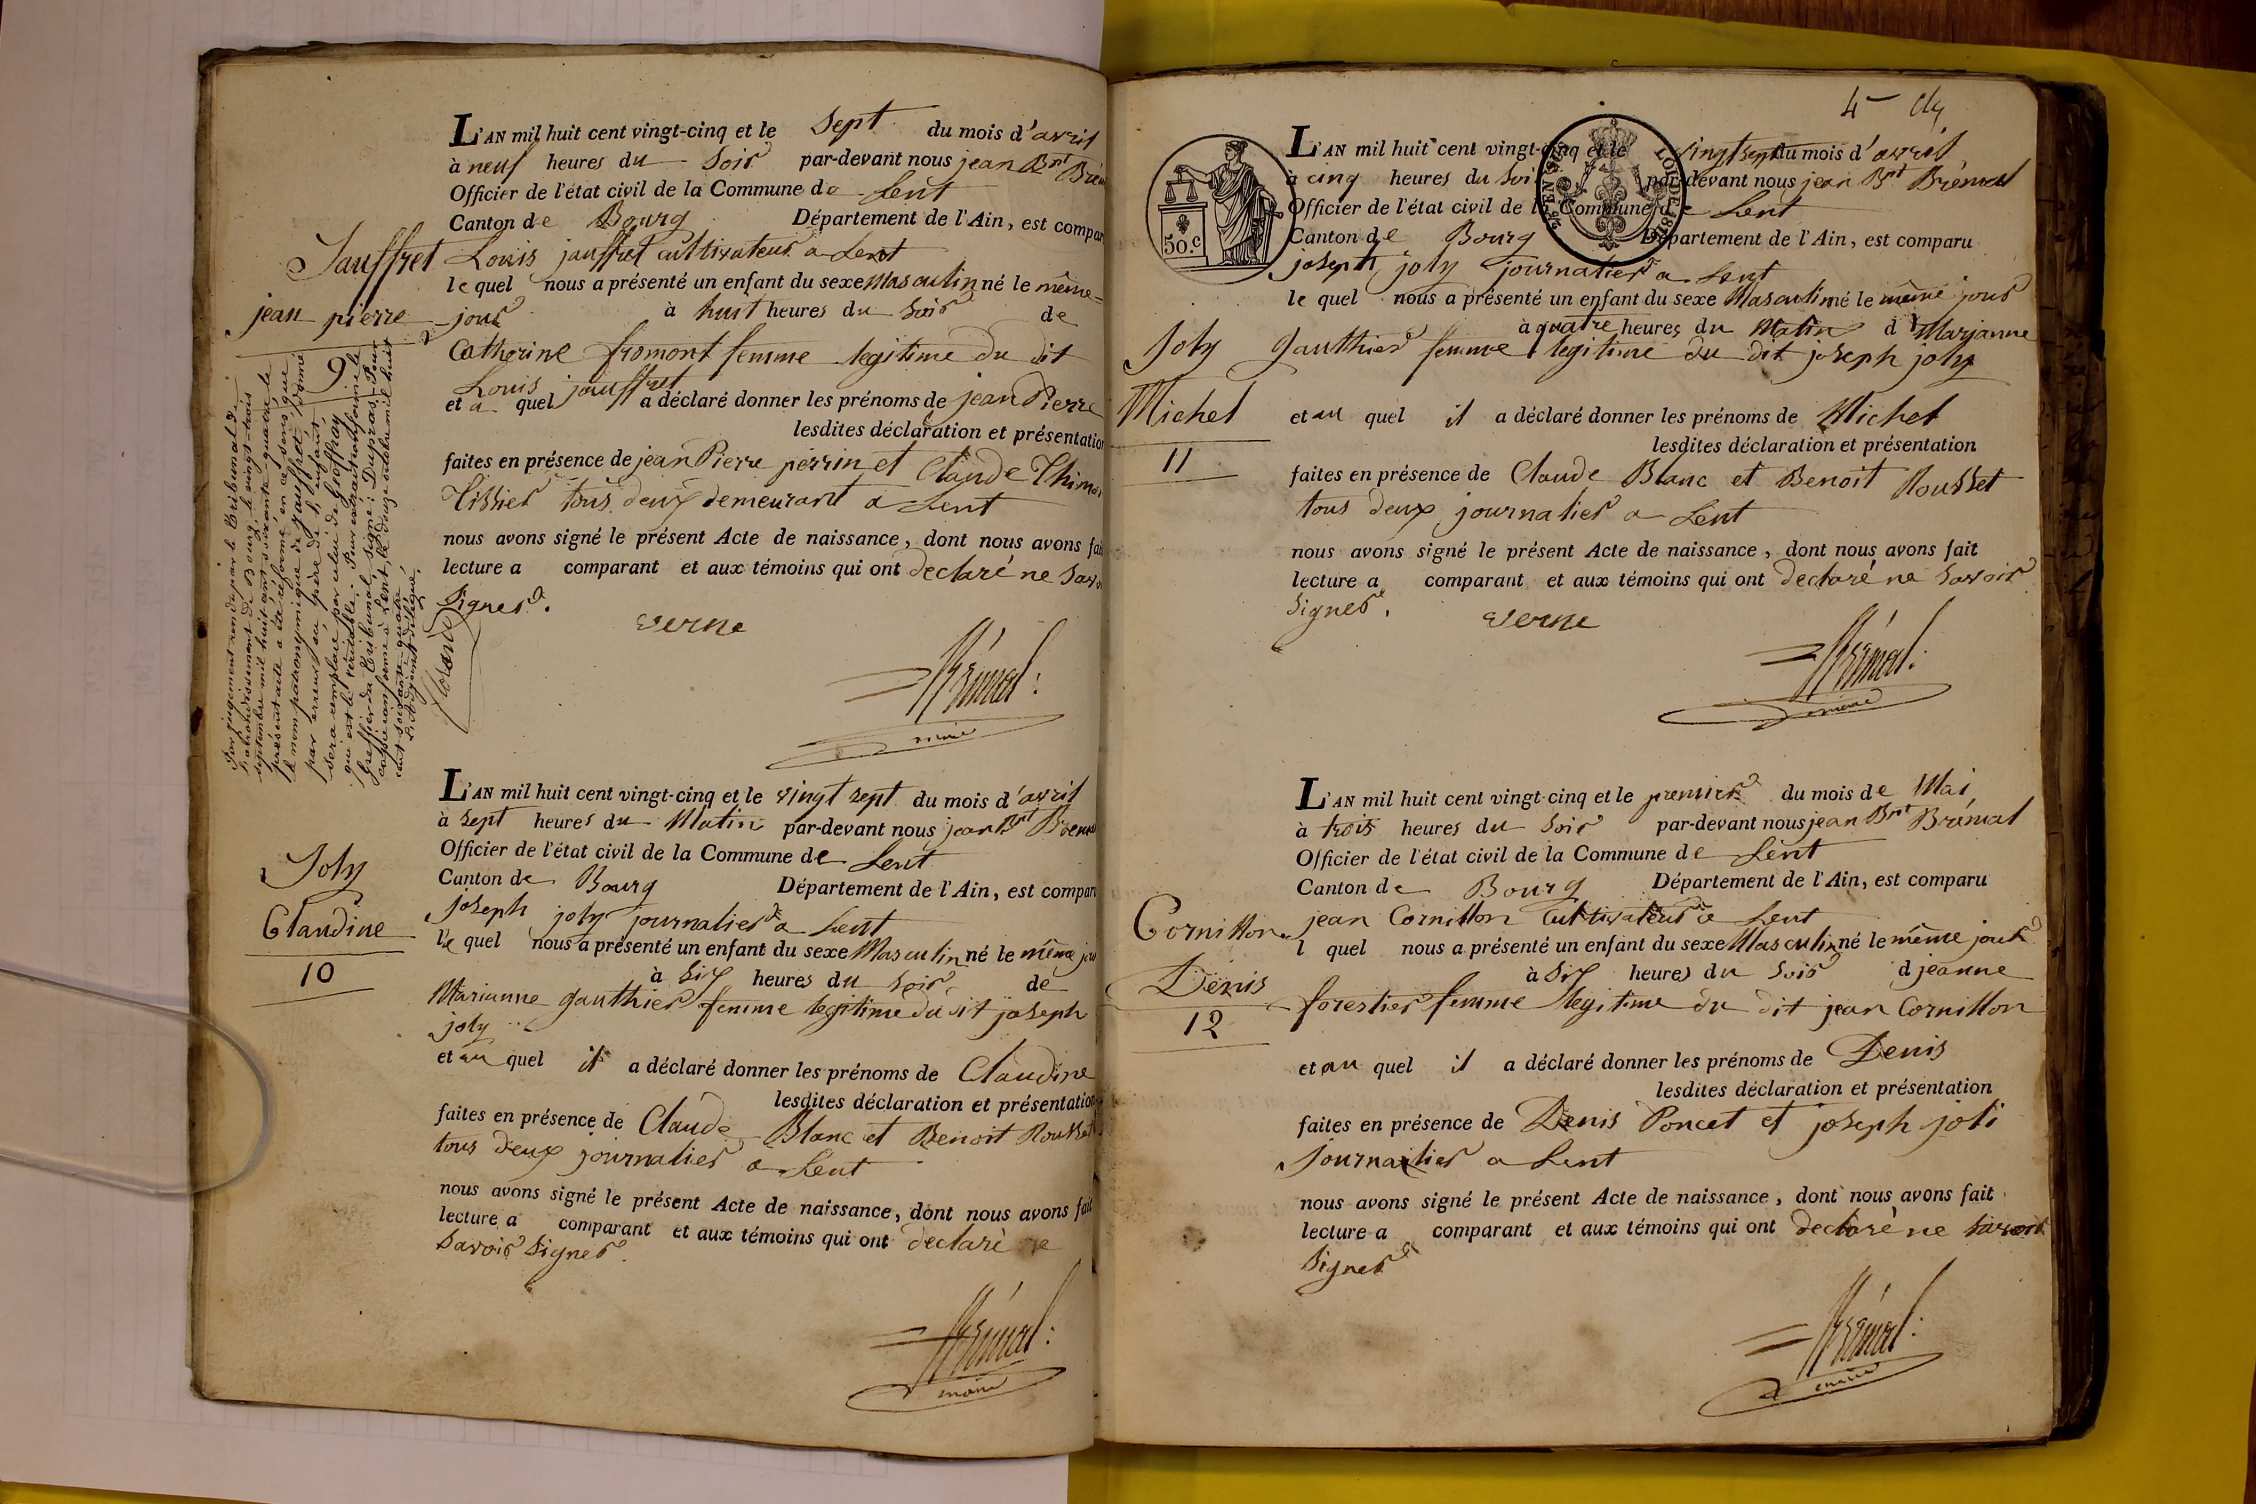 Jauffret
jean pierre
9
Par jugement rendu par le Tribunal de
l'arrondissement de Bourg, le vingt-trois
septembre mil huit cent soixante quatre le
présent acte a été réformé en ce sens que
le nom patronymique de Jauffret, donné
par erreur au père de l'enfant
sera remplacé par celui de Geoffray
qui est le véritable. Pour extrait conforme le
Greffier du Tribunal, signé: Dupras. Pour
copie conforme à Lent, le douze octobre mil huit
cent soixante-quatre
L'adjoint délégué,
L'AN mil huit cent vingt-cinq et le Sept du mois d'avril
à neuf heures du Soir par-devant nous jean Bnt Brém
Officier de l'état civil de la Commune de Lent
Canton de Bourg Département de l'Ain, est compar
Louis jauffret cultivateur a Lent
le quel nous a présenté un enfant du sexe Masculin né le même
jour à huit heures du Soir de
Catherine fromont femme legitime du dit
Louis jauffret
et a quel a déclaré donner les prénoms de jean Pierre
lesdites déclaration et présentation
faites en présence de jean Pierre perrin et Claude
Tissier tous deux demeurant a Lent
nous avons signé le présent Acte de naissance, dont nous avons fai
lecture a comparant et aux témoins qui ont declaré ne Savoi
Signer.
verne
Brémal:
maire
Joly
Claudine
10
L'AN mil huit cent vingt-cinq et le vingt sept du mois d'avril
à Sept heures du Matin par-devant nous jean Bnt Bremal
Officier de l'état civil de la Commune de Lent
Canton de Bourg Département de l'Ain, est compar
joseph joly journalier a Lent
le quel nous a présenté un enfant du sexe Masculin né le même jou
à Six heures du Soir de
Marianne gauthier femme legitime du dit joseph
joly
et au quel il a déclaré donner les prénoms de Claudine
lesdites déclaration et présentation
faites en présence de Claude Blanc et Benoit Rousset
tous deux journalier a Lent
nous avons signé le présent Acte de naissance, dont nous avons fait
lecture a comparant et aux témoins qui ont declaré ne
Savoir Signer.
Brémal:
maire
4
50.c
EN SUS
LOI DE 18
L'AN mil huit cent vingt-cinq et le vingt sept du mois d'avril
à cinq heures du Soi par-devant nous jean Bnt Brémal
Officier de l'état civil de la Commune de Lent
Canton de Bourg Département de l'Ain, est comparu
joseph joly journalier a Lent
le quel nous a présenté un enfant du sexe Masculin né le même jour
à quatre heures du Matin d Marjanne
gauthier femme legitime du dit joseph joly
Joly
Michel
11
et au quel il a déclaré donner les prénoms de Michel
lesdites déclaration et présentation
faites en présence de Claude Blanc et Benoit Rousset
tous deux journalier a Lent
nous avons signé le présent Acte de naissance, dont nous avons fait
lecture a comparant et aux témoins qui ont declaré ne Savoir
Signer.
verne
Brémal:
maire
L'AN mil huit cent vingt-cinq et le premier du mois de Mai
à trois heures du Soir par-devant nous jean Bnt Brémal
Officier de l'état civil de la Commune de Lent
Canton de Bourg Département de l'Ain, est comparu
Cornillon
Denis
12
jean Cornillon Cultivateur a Lent
l quel nous a présenté un enfant du sexe Masculin né le même jour
à Six heures du Soir d jeanne
forestier femme legitime du dit jean Cornillon
et au quel il a déclaré donner les prénoms de Denis
lesdites déclaration et présentation
faites en présence de Denis Poncet et joseph joli
Journalier a Lent
nous avons signé le présent Acte de naissance, dont nous avons fait
lecture a comparant et aux témoins qui ont declaré ne Savoir
Signer
Brémal:
maire